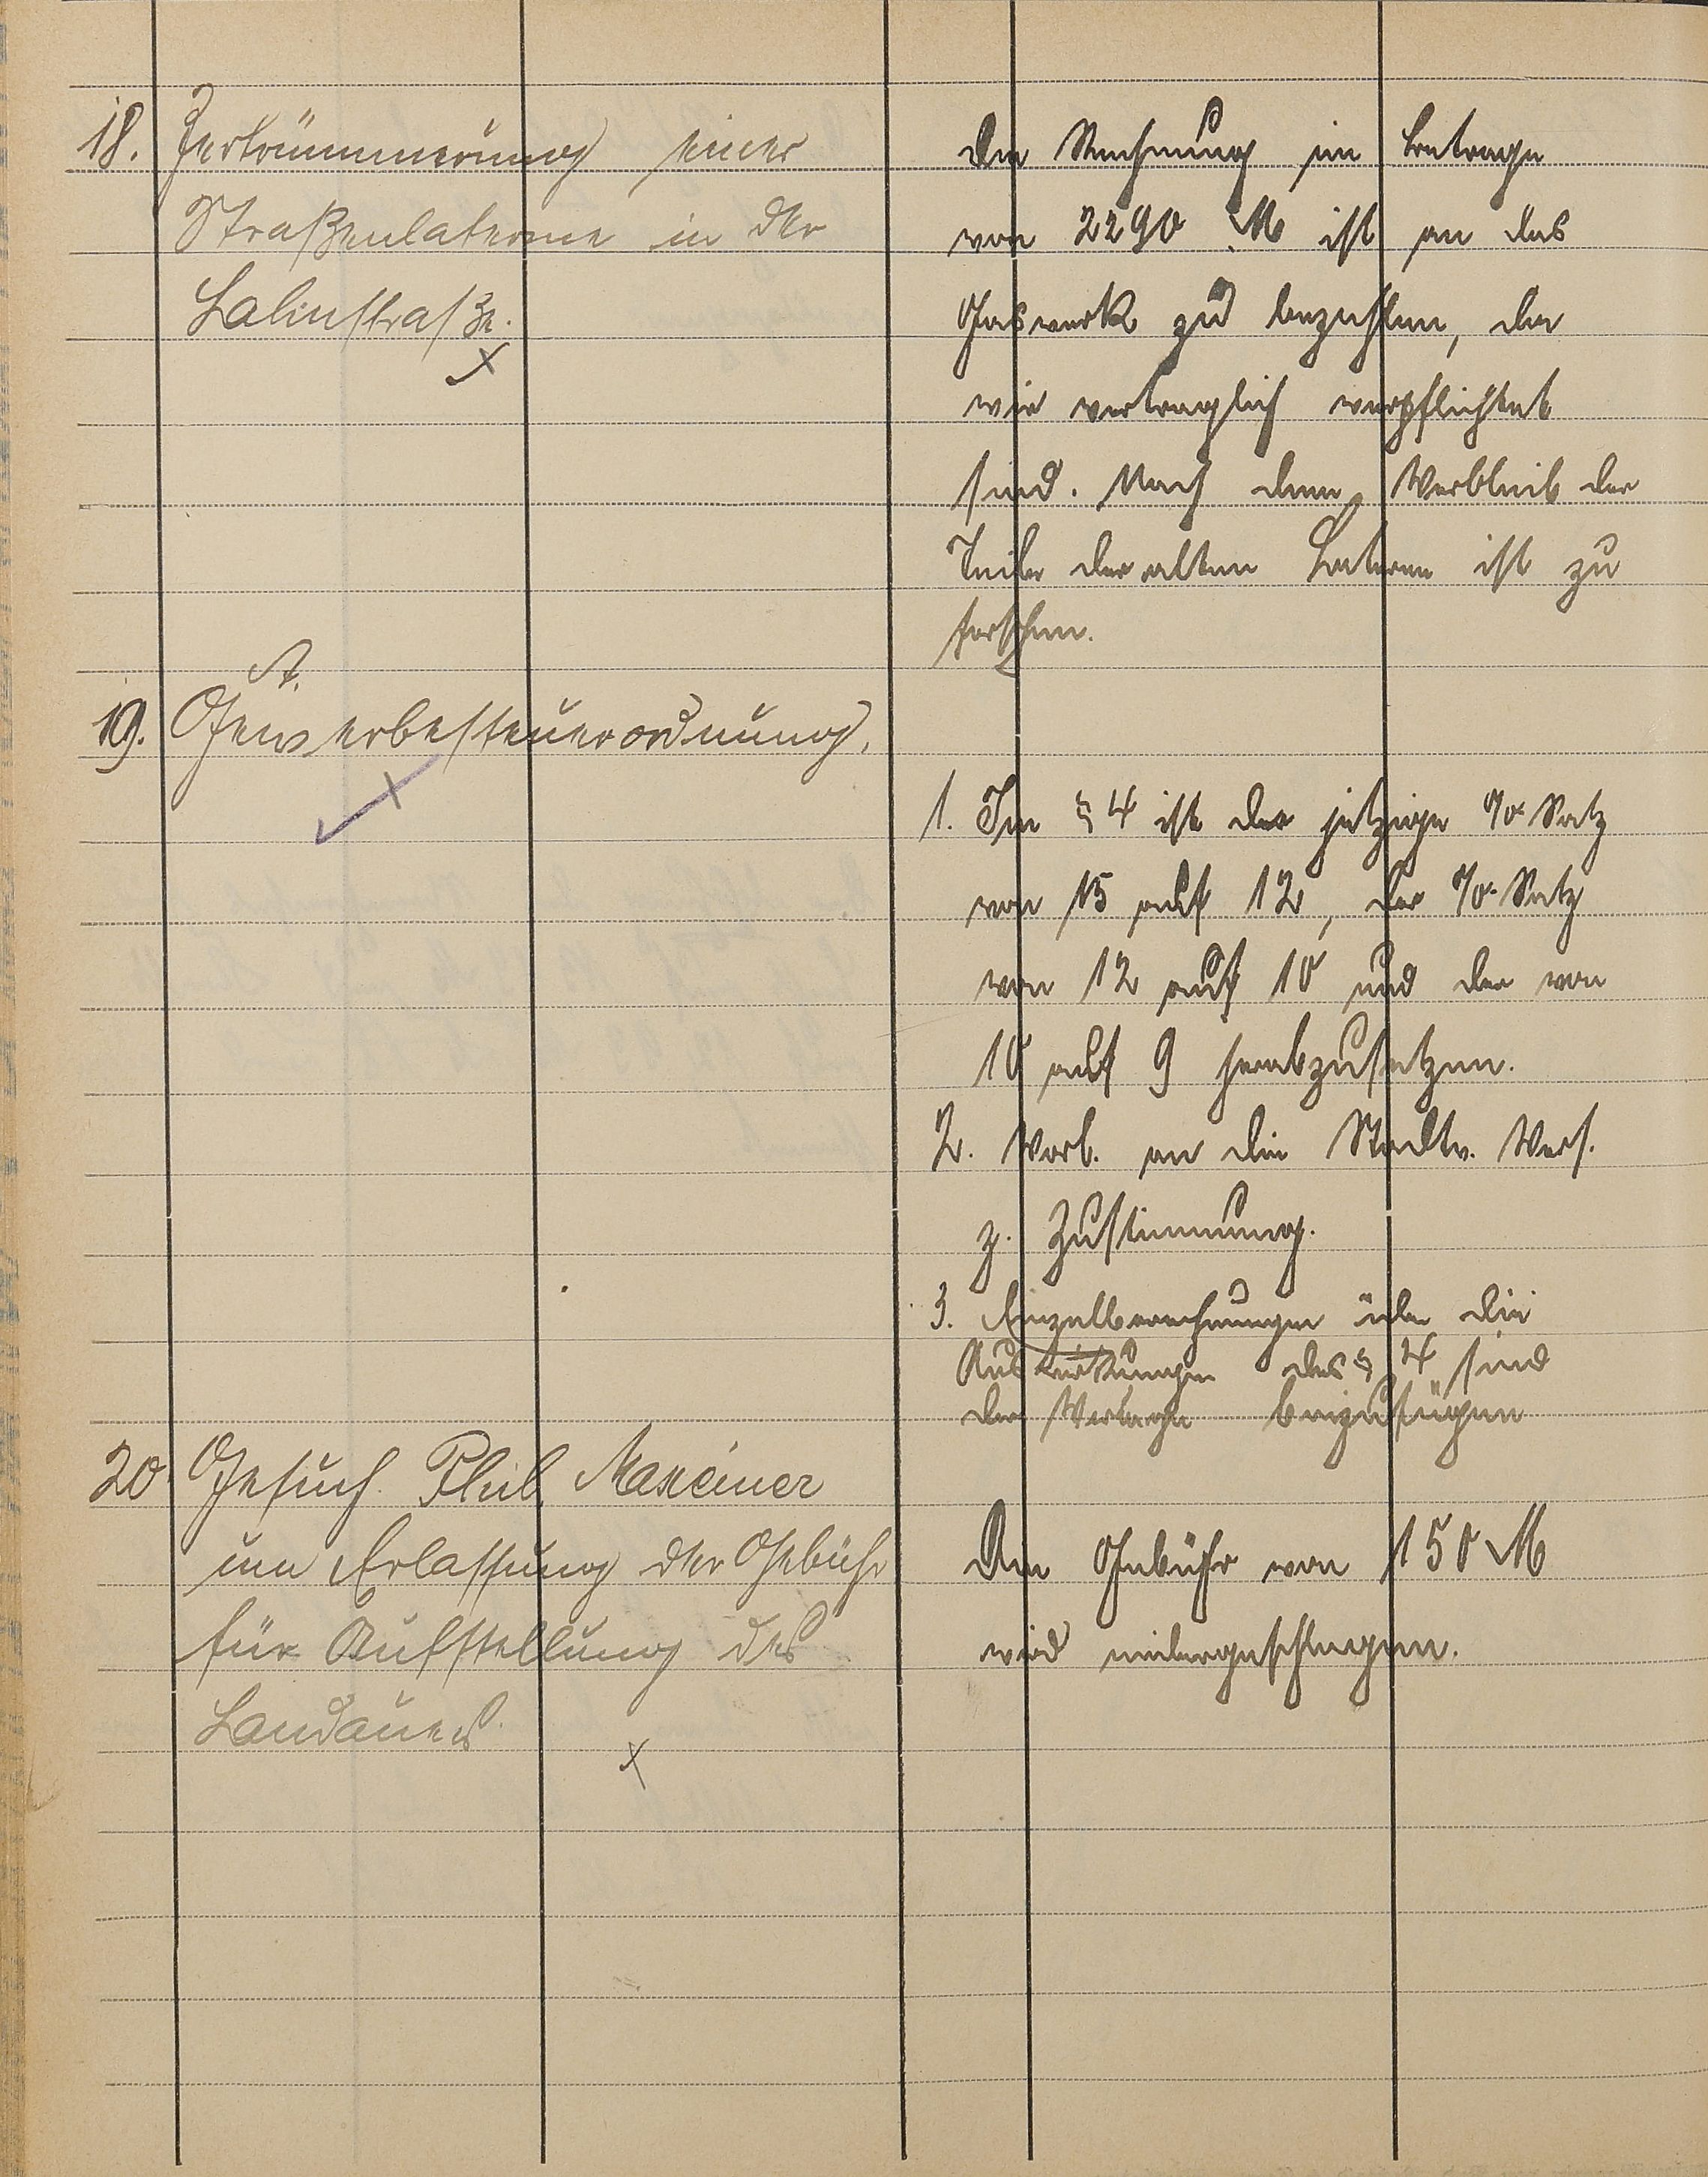 18. Zertrümmerung einer
Straßenlaterne in der
Lahnstraße.
Die Rechnung im Betrage
von 2290 M ist an das
Gaswerk zu bezahlen, da
wir vertraglich verpflichtet
sind. Nach dem Verbleib der
Teile der alten Laterne ist zu
forschen.
19. Gewerbesteuerordnung.
1. Im § 4 ist der jetzige % Satz
von 15 auf 12, der % Satz
von 12 auf 10 und der von
10 auf 9 herabzusetzen.
2. Vorl. an die Stadtv. Vers.
z. Zustimmung.
3. Einzelberechnungen über die
Auswirkungen des § 4 sind
der Vorlage beizufügen
20 Gesuch Phil. Maxeiner
um Erlassung der Gebühr
für Aufstellung des
Landauers.
Die Gebühr von 150 M
wird niedergeschlagen.